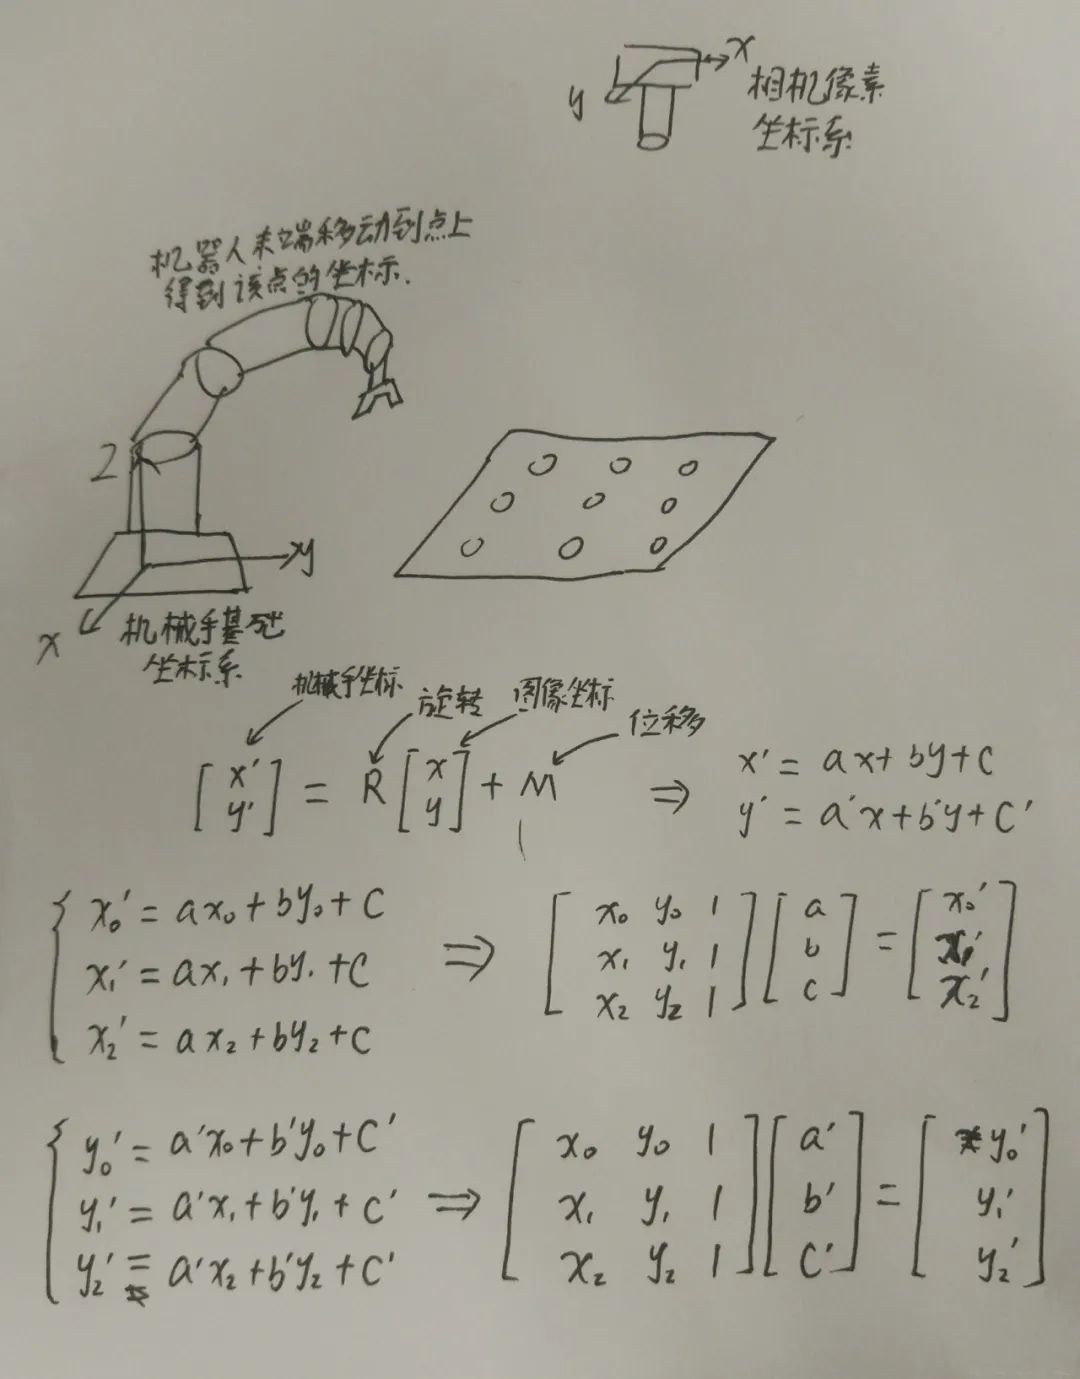 x
y
相机像素
坐标系
机器人末端移动到点上
得到该点的坐标.
Z
y
x
机械手基础
坐标系
机械手坐标
旋转
图像坐标
位移
[x' y'] = R [x y] + M ⇒ x' = ax + by + c
y' = a'x + b'y + c'
x₀' = ax₀ + by₀ + c
x₁' = ax₁ + by₁ + c
x₂' = ax₂ + by₂ + c
⇒
x₀ y₀ 1 a = x₀'
x₁ y₁ 1 b x₁'
x₂ y₂ 1 c x₂'
y₀' = a'x₀ + b'y₀ + c'
y₁' = a'x₁ + b'y₁ + c'
y₂' = a'x₂ + b'y₂ + c'
⇒
x₀ y₀ 1 a' = y₀'
x₁ y₁ 1 b' y₁'
x₂ y₂ 1 c' y₂'